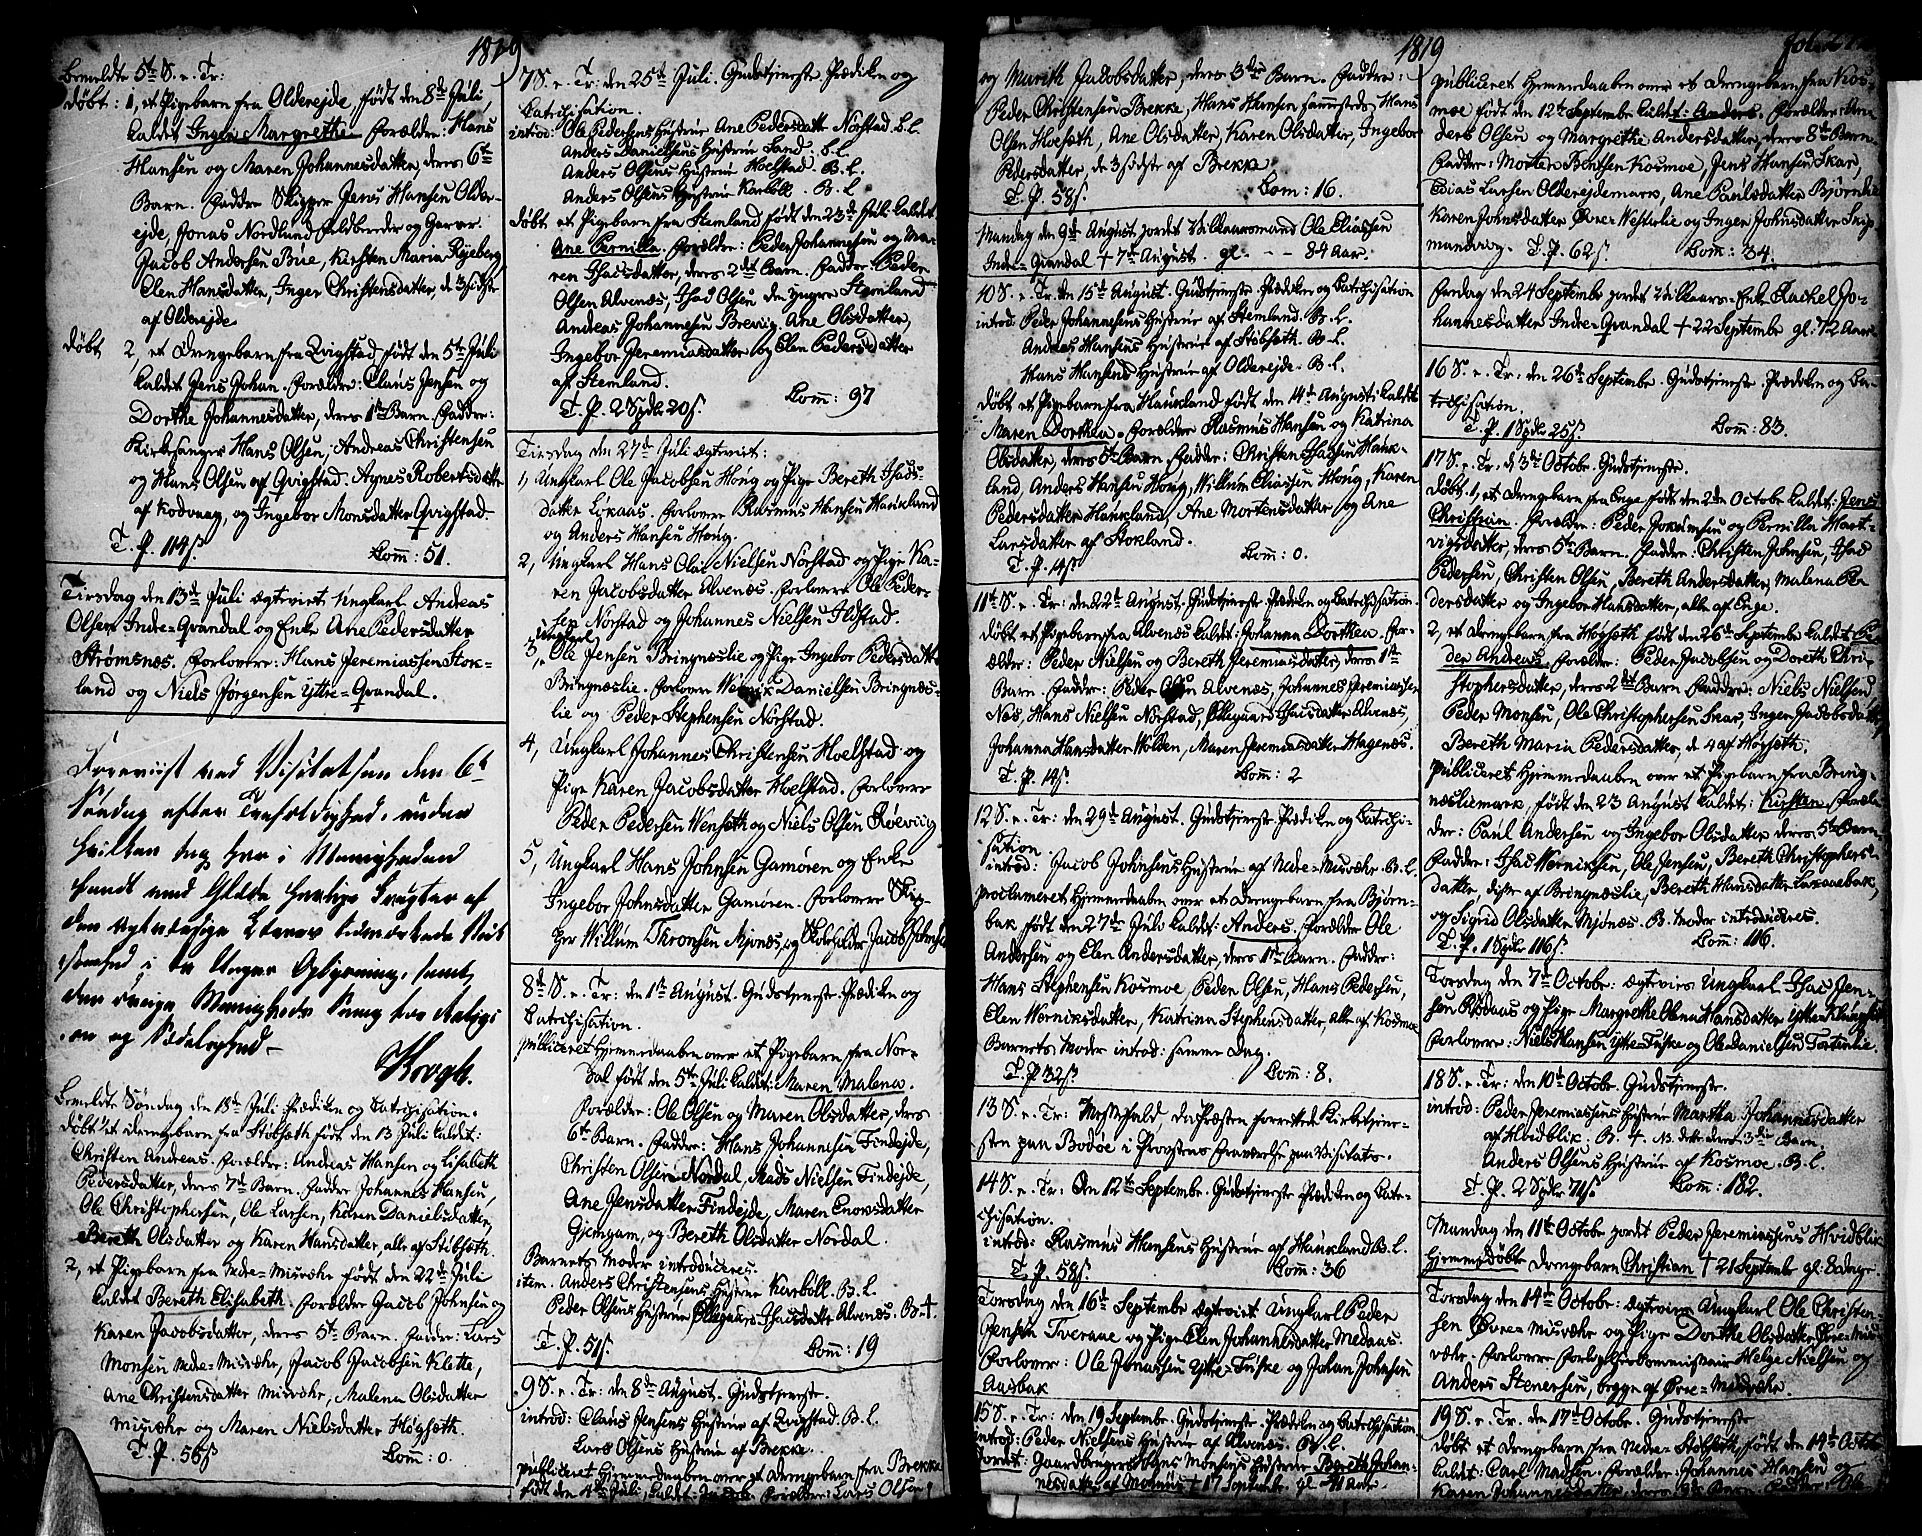 1819
Bemeldte 5te S. e. Tr:
døbt: 1, et Pigebarn fra Olderejde, født den 8de Juli
kaldet Inger Margrethe. Forældre: Hans
Hansen og Maren Johannesdatter, deres 6te
Barn. Faddre Skipper Jens Hansen Older-
ejde, Jonas Nordlund Feldbereder og Garver.
Jacob Andersen Bue, Kirsten Maria Ryeberg
Elen Hansdatter, Inger Christensdatter, de 3 sidste
af Olderejde.
døbt 2, et Drengebarn fra Qvigstad, født den 5te Juli
kaldet Jens Johan. Forældre: Claus Jensen og
Dorthe Johannesdatter, deres 1ste Barn. Faddre:
Kirkesanger Hans Olsen, Andreas Christensen
og Hans Olsen af Qvigstad. Agnes Robertsdatter
af Kodvaag, og Ingebor Monsdatter Qvigstad.
T. P. 114 s. Com: 51.
Tirsdag den 13de Juli ægteviet Ungkarl Andreas
Olsen Indre-Qvandal og Enke Ane Pedersdatter
Strømsnæs. Forlovere: Hans Jeremiassen Stok-
land og Niels Jørgensen Yttre-Qvandal.
Foreviist ved Visitatsen den 6te
Søndag efter Trefoldighed, under
hvilken jeg har i Menigheden
fundet med Glæde herlige Frugter af
den
i de Unges Oplysning, samt
den øvrige Menigheds Sang for Religi-
on og Sædelighed.
Krogh.
Bemeldte Søndag den 18de Juli Prædiken og Catechisation.
døbt 1, et Drengebarn fra Støbsæth født den 13 Juli kaldet:
Christen Andreas. Forældre: Andreas Hansen og Lisabeth
Pedersdatter, deres 7de Barn. Faddre Johannes Hansen,
Ole Christophersen, Ole Larsen, Karen Danielsdatter,
Bereth Olsdatter og Karen Hansdatter, alle af Støbsæth.
2, et Pigebarn fra Nedre-Misvær født den 22de Juli
kaldet Bereth Elisabeth. Forældre Jacob Johnsen og
Karen Jacobsdatter, deres 5te Barn. Faddre: Lars
Monsen Nedre-Misvær, Jacob Jacobsen Klette,
Ane Christensdatter Misvær, Malena Olsdatter
Misvær og Maren Nielsdatter Høgsæth.
T. P. 56 s Com: 0.
7 S. e. Tr: den 25de Juli. Gudstjeneste Prædiken og
Catechisation.
introd: Ole Pedersens Hustrue Ane Pedersdatter Nørstad B. L.
Anders Danielsens Hustrue Sand. B. L.
Anders Olsens Hustrue Hoelstad. B. L.
Anders Olsens Hustrue Karbøll. B. L.
døbt et Pigebarn fra Stemland født den 23de Juli kaldet
Ane Pernilla. Forældre: Peder Johannesen og Ma-
ren Isacsdatter, deres 2det Barn. Faddre Peder
Olsen Alvenæs, Isac Olsen den yngre Stemland
Andreas Johannesen Brevig. Ane Olsdatter,
Ingebor Jeremiasdatter og Elen Pedersdatter
af Stemland. Com: 97
T. P. 2 Spdr 20 s.
Tirsdag den 27de Juli ægteviet:
1, Ungkarl Ole Jacobsen Honig og Pige Bereth Isacs-
datter Løkaas. Forlovere Rasmus Hansen Haukland
og Anders Hansen Honig.
2, Ungkarl Hans Olai Nielsen Nørstad og Pige Ka-
ren Jacobsdatter Alvenæs. Forlovere Ole Peder-
sen Nørstad og Johannes Nielsen Ildstad.
Ungkarl
3, Ole Jensen Bringnæslie og Pige Ingebor Pedersdatter
Bringnæslie. Forlover Wernik Danielsen Bringnæs-
lie og Peder Stephensen Nørstad.
4, Ungkarl Johannes Christensen Hoelstad og
Pige Karen Jacobsdatter Hoelstad. Forlovere
Peder Pedersen Wensæth og Niels Olsen Røevig
5, Ungkarl Hans Johnsen Gamøren og Enke
Ingebor Johnsdatter Gamøren. Forlovere Skip-
per Willum Thronsen Mjønæs, og Jacob Johnsen
8de S. e. Tr: den 1ste August. Gudstjeneste Prædiken og
Catechisation.
publiceret Hjemmedaaben over et Pigebarn fra Nor-
dal født den 5te Juli kaldet: Maren Malena.
Forældre: Ole Olsen og Maren Olsdatter, deres
6te Barn. Faddre: Hans Johannesen Findejde,
Christen Olsen Nordal, Mads Nielsen Findejde,
Ane Jensdatter Findejde, Maren Enoksdatter
Gjemgam, og Bereth Olsdatter Nordal.
Barnets Moder introduceres.
item. Anders Christensens Hustrue Karbøll. B. L.
Peder Olsens Hustrue Isacsdatter Alvenæs. B. +.
T. P. 51 s. Com: 19
9 S. e. Tr: den 8de August. Gudstjeneste.
introd: Claus Jensens Hustrue af Qvigstad. B. L.
Lars Olsens Hustrue af Brekke.
publiceret Hjemmedaaben over et Drengebarn fra Brekke
født den 4de Juli, kaldet: Jacob. Forældre: Lars Olsen
1819
og Marith Jacobsdatter, deres 3die Barn. Faddre:
Peder Christensen Brekke, Hans Hansen sammesteds, Hans
Olsen Hoesæth, Ane Olsdatter, Karen Olsdatter, Ingebor
Pedersdatter, de 3 sidste af Brekke.
T. P. 58 s. Com: 16.
Mandag den 9de August jordet Vilkaarsmand Ole Eliassen
Indre-Qvandal + 7de August. gl: - - 84 Aar.
10 S. e. Tr: den 15de August. Gudstjeneste Prædiken og Catechisation
introd: Peder Johannesens Hustrue af Stemland. B. L.
Andreas Hansens Hustrue af Støbsæth. B. L.
Hans Hansens Hustrue af Olderejde. B. L.
døbt et Pigebarn fra Haukland født den 14de August kaldet
Maren Dorthea. Forældre Rasmus Hansen og Katrina
Olsdatter, deres 5te Barn. Faddre: Christen Isacsen Hauk-
land, Anders Hansen Honig, Willum Eliassen Honig, Karen
Pedersdatter Haukland, Ane Mortensdatter og Ane
Larsdatter af Stokland. Com: 0.
T. P. 14 s
11te S. e. Tr: den 22de August. Gudstjeneste Prædiken og Catechisation.
døbt et Pigebarn fra Alvenæs kaldet: Johanna Dorthea. For-
ældre: Peder Nielsen og Bereth Jeremiasdatter, deres 1ste
Barn. Faddre: Peder Olsen Alvenæs, Johannes Jeremiassen
Næs, Hans Nielsen Nørstad, Isacsdatter Alvenæs,
Johanna Hansdatter Wolden, Maren Jeremiasdatter Hagenæs.
T. P. 14 s. Com: 2
12 S. e. Tr: den 29de August. Gudstjeneste Prædiken og Catechi-
sation.
introd: Jacob Johnsens Hustrue af Nedre-Misvær. B. L.
proclameret Hjemmedaaben over et Drengebarn fra Bjørn-
bak født den 27de Juli kaldet: Anders. Forældre Ole
Andersen og Elen Andersdatter, deres 1ste Barn. Faddre:
Hans Stephensen Kosmoe, Peder Olsen, Hans Pedersen,
Elen Werniksdatter, Katrina Stephensdatter, alle af Kosmoe
Barnets Moder introd: samme Dag.
T. P. 32 s. Com: 8.
13 S. e. Tr: Messefald, da Præsten forrettede Kirketjene-
sten paa Bodøe i Provstens Fraværelse paa Visitats.
14 S. e. Tr: den 12te Septembr. Gudstjeneste Prædiken og Cate-
chisation.
introd: Rasmus Hansens Hustrue af Haukland B. L.
T. P. 58 s. Com: 36
Torsdag den 16de Septembr ægteviet Ungkarl Peder
Jensen Tveraae og Pige Elen Johannesdatter Medaas.
Forlovere: Ole Jonassen Yttre-Fuske og Johan Johnsen
Aasbak
15 S. e. Tr: den 19 Septembr. Gudstjeneste Prædiken og Catechisation
introd: Peder Nielsens Hustrue af Alvenæs. B. L.
jordet: Gaardbruger Johans Monsens Hustrue Bereth Johan-
nesdatter af Mohuus + 17 Septembr. gl. 71 Aar.
1819
publiceret Hjemmedaaben over et Drengebarn fra Kos-
moe født den 12te Septembr kaldet: Anders. Forældre: An-
ders Olsen og Margrethe Andersdatter, deres 8de Barn.
Faddre: Morten Bentsen Kosmoe, Jens Hansen Skar,
Tobias Larsen Olderejdemark, Ane Paulsdatter Bjørnlie
Karen Johnsdatter Øvre-Westerlie og Inger Johnsdatter Skip-
mandvaag. T. P. 62 s. Com: 34.
Fredag den 24 Septembr jordet Vilkaars-Enke Rachel Jo-
hannesdatter Indre-Qvandal + 22 Septembr gl: 72 Aar.
16 S. e. Tr: den 26de Septembr. Gudstjeneste Prædiken og Ca-
techisation.
T. P. 1 Spdr 25 s. Com: 83.
17 S. e. Tr: den 3de Octobr. Gudstjeneste.
døbt: 1, et Drengebarn fra Enge født den 2den Octobr kaldet: Jens
Christian. Forældre: Peder Jokumsen og Pernilla Hart-
vigsdatter, deres 5te Barn. Faddre: Christen Johnsen, Isac
Pedersen, Christen Olsen, Bereth Andersdatter, Malena Pe-
dersdatter og Ingebor Hansdatter, alle af Enge.
2, et Drengebarn fra Høgsæth født den 26de Septembr kaldet Pe-
der Andreas. Forældre: Peder Jacobsen og Doreth Chri-
stophersdatter, deres 2det Barn. Faddre: Niels Nielsen,
Peder Monsen, Ole Christophersen Skar, Inger Jacobsdatter
Bereth Maria Pedersdatter, de 4 af Høgsæth.
publiceret Hjemmedaaben over et Pigebarn fra Bring-
næsliemark, født den 23 August kaldet: Kirsten. Foræl-
dre: Paul Andersen og Ingebor Olsdatter deres 5te Barn.
Faddre: Isac Werniksen, Ole Jensen, Bereth Christophers-
datter, disse af Bringnæslie, Bereth Hansdatter Laxaaebak,
og Sigrid Olsdatter Mjønæs. B. Moder introduceres.
T. P. 1 Spdr 116 s. Com: 116.
Torsdag den 7de Octobr: ægtevies Ungkarl Isac Jen-
sen Rødaas og Pige Margrethe Olena Hansdatter Yttre-Klungset
Forlovere: Niels Hansen Yttre-Fuske og Ole Danielsen Tortenlie.
18 S. e. Tr: den 10de Octobr. Gudstjeneste.
introd: Peder Jeremiassens Hustrue Martha Johannesdatter
af Hvidblik. B. +. NB. dette deres 3die Barn.
Anders Olsens Hustrue af Kosmoe. B. L.
T. P. 2 Spdr 74 s. Com: 182.
Mandag den 11te Octobr jordet Peder Jeremiassens Hvidblik
hjemmedøbte Drengebarn Christian + 21 Septembr gl: 8 dage.
Torsdag den 14de Octobr: ægtevies Ungkarl Ole Christen-
sen Øvre-Misvær og Pige Dorthe Olsdatter Øvre-Mis-
vær. Forlovere Forligelsescommissair Helge Nielsen og
Anders Stenersen, begge af Øvre-Misvær.
19 S. e. Tr. den 17de Octobr. Gudstjeneste
døbt et Drengebarn fra Nedre-Støbsæth, født den 14de Octobr
kaldet: Carl Madsen. Forældre: Johannes Hansen og
Karen Johannesdatter, deres Barn. Faddre: Ole